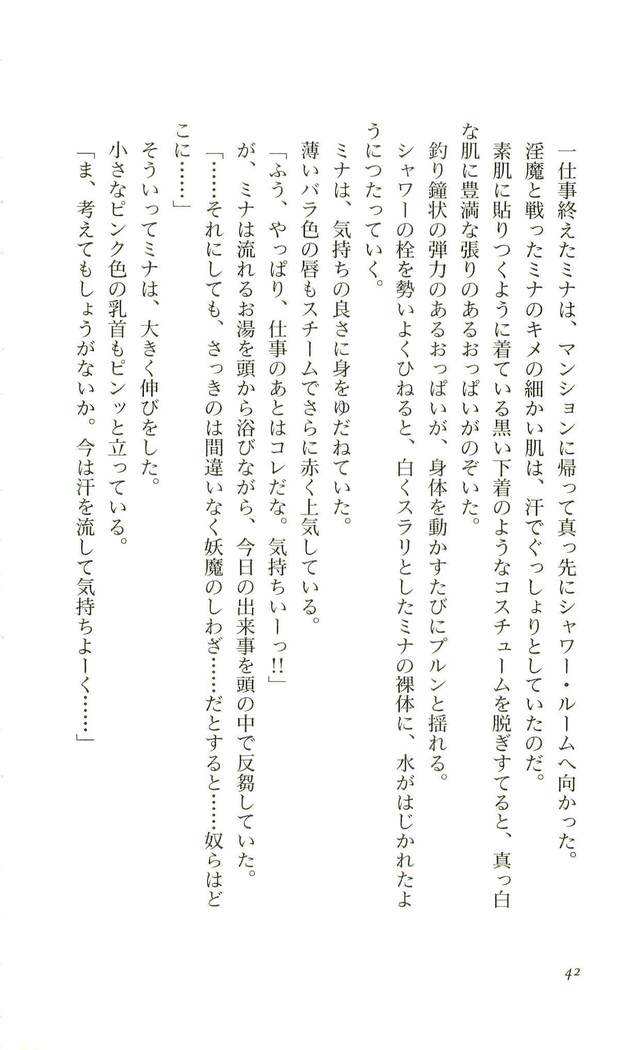 一仕事終えたミナは、マンションに帰って真っ先にシャワー・ルームへ向かった。
淫魔と戦ったミナのキメの細かい肌は、汗でぐっしょりとしていたのだ。
素肌に貼りつくように着ている黒い下着のようなコスチュームを脱ぎすてると、真っ白
な肌に豊満な張りのあるおっぱいがのぞいた。
釣り鐘状の弾力のあるおっぱいが、身体を動かすたびにプルンと揺れる。
シャワーの栓を勢いよくひねると、白くスラリとしたミナの裸体に、水がはじかれたよ
うにつたっていく。
ミナは、気持ちの良さに身をゆだねていた。
薄いバラ色の唇もスチームでさらに赤く上気している。
「ふう、やっぱり、仕事のあとはコレだな。気持ちいーっ!!」
が、ミナは流れるお湯を頭から浴びながら、今日の出来事を頭の中で反芻していた。
「……それにしても、さっきのは間違いなく妖魔のしわざ……だとすると……奴らはど
こに……」
そういってミナは、大きく伸びをした。
小さなピンク色の乳首もピンッと立っている。
「ま、考えてもしょうがないか。今は汗を流して気持ちよーく……」
42